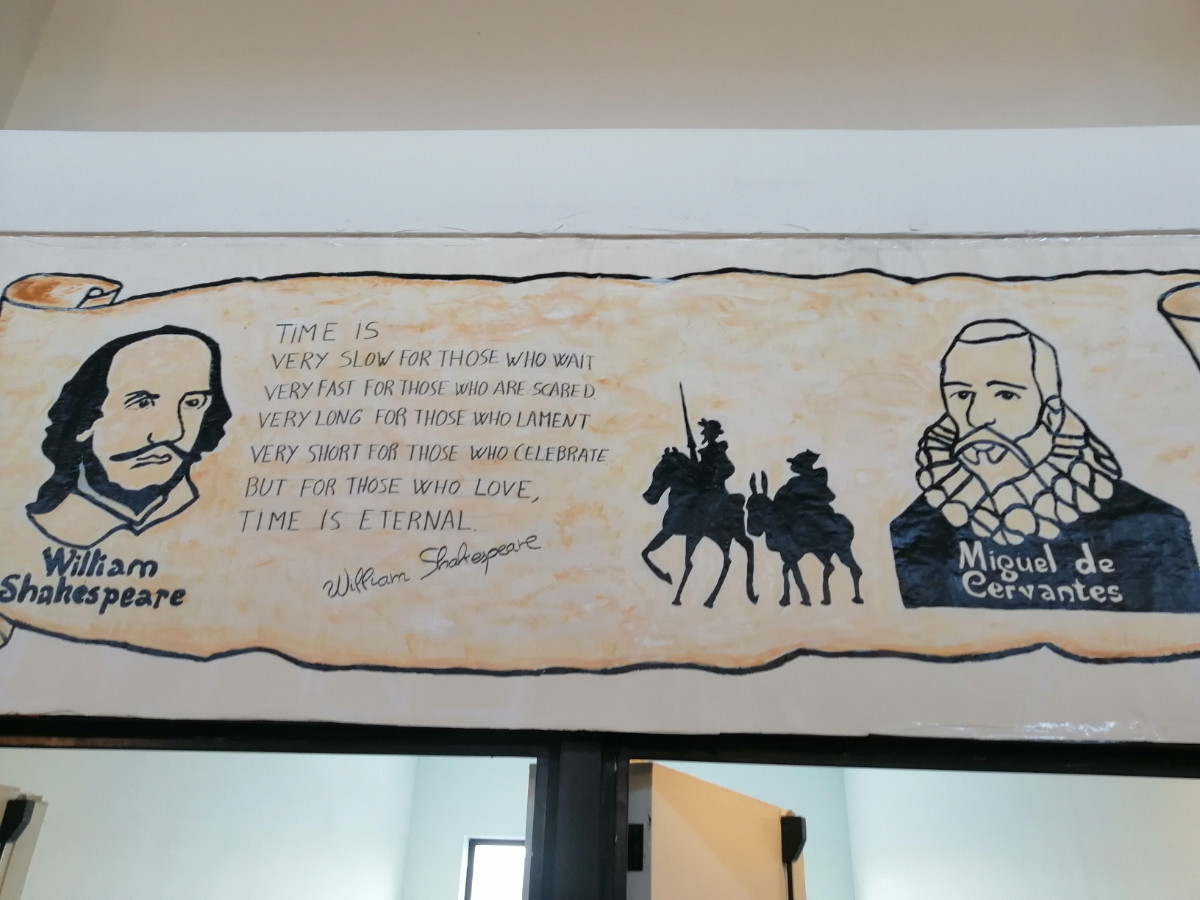 TIME IS
VERY SLOW FOR THOSE WHO WAIT
VERY FAST FOR THOSE WHO ARE SCARED.
VERY LONG FOR THOSE WHO LAMENT
VERY SHORT FOR THOSE WHO CELEBRATE
BUT FOR THOSE WHO LOVE,
TIME IS ETERNAL.
William Shakespeare
William
Shakespeare
Miguel de
Cervantes